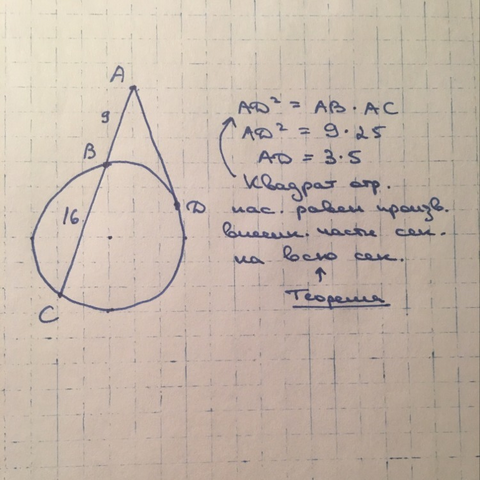 A
9
B
16
D
C
AD² = AB · AC
AD² = 9 · 25
AD = 3 · 5
Квадрат отр.
кас. равен произв.
внешн. части сек.
на всю сек.
Теорема